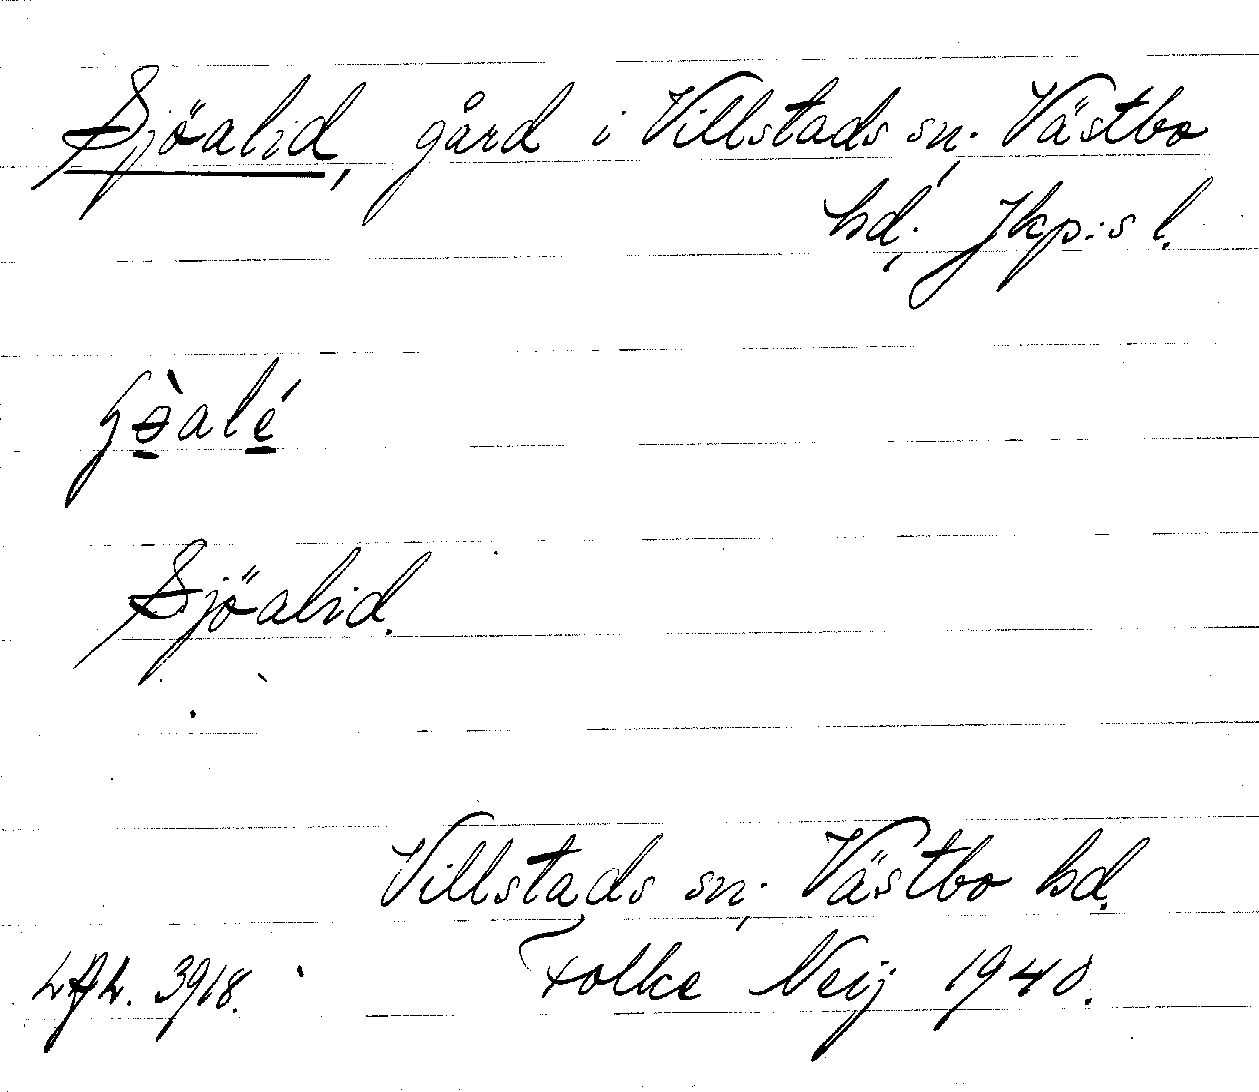 Sjöalid, gård i Villstads sn. Västbo
hd. Jkp:s l.
Sjöalid.
Villstads sn. Västbo hd.
Folke Neij 1940.
3918.